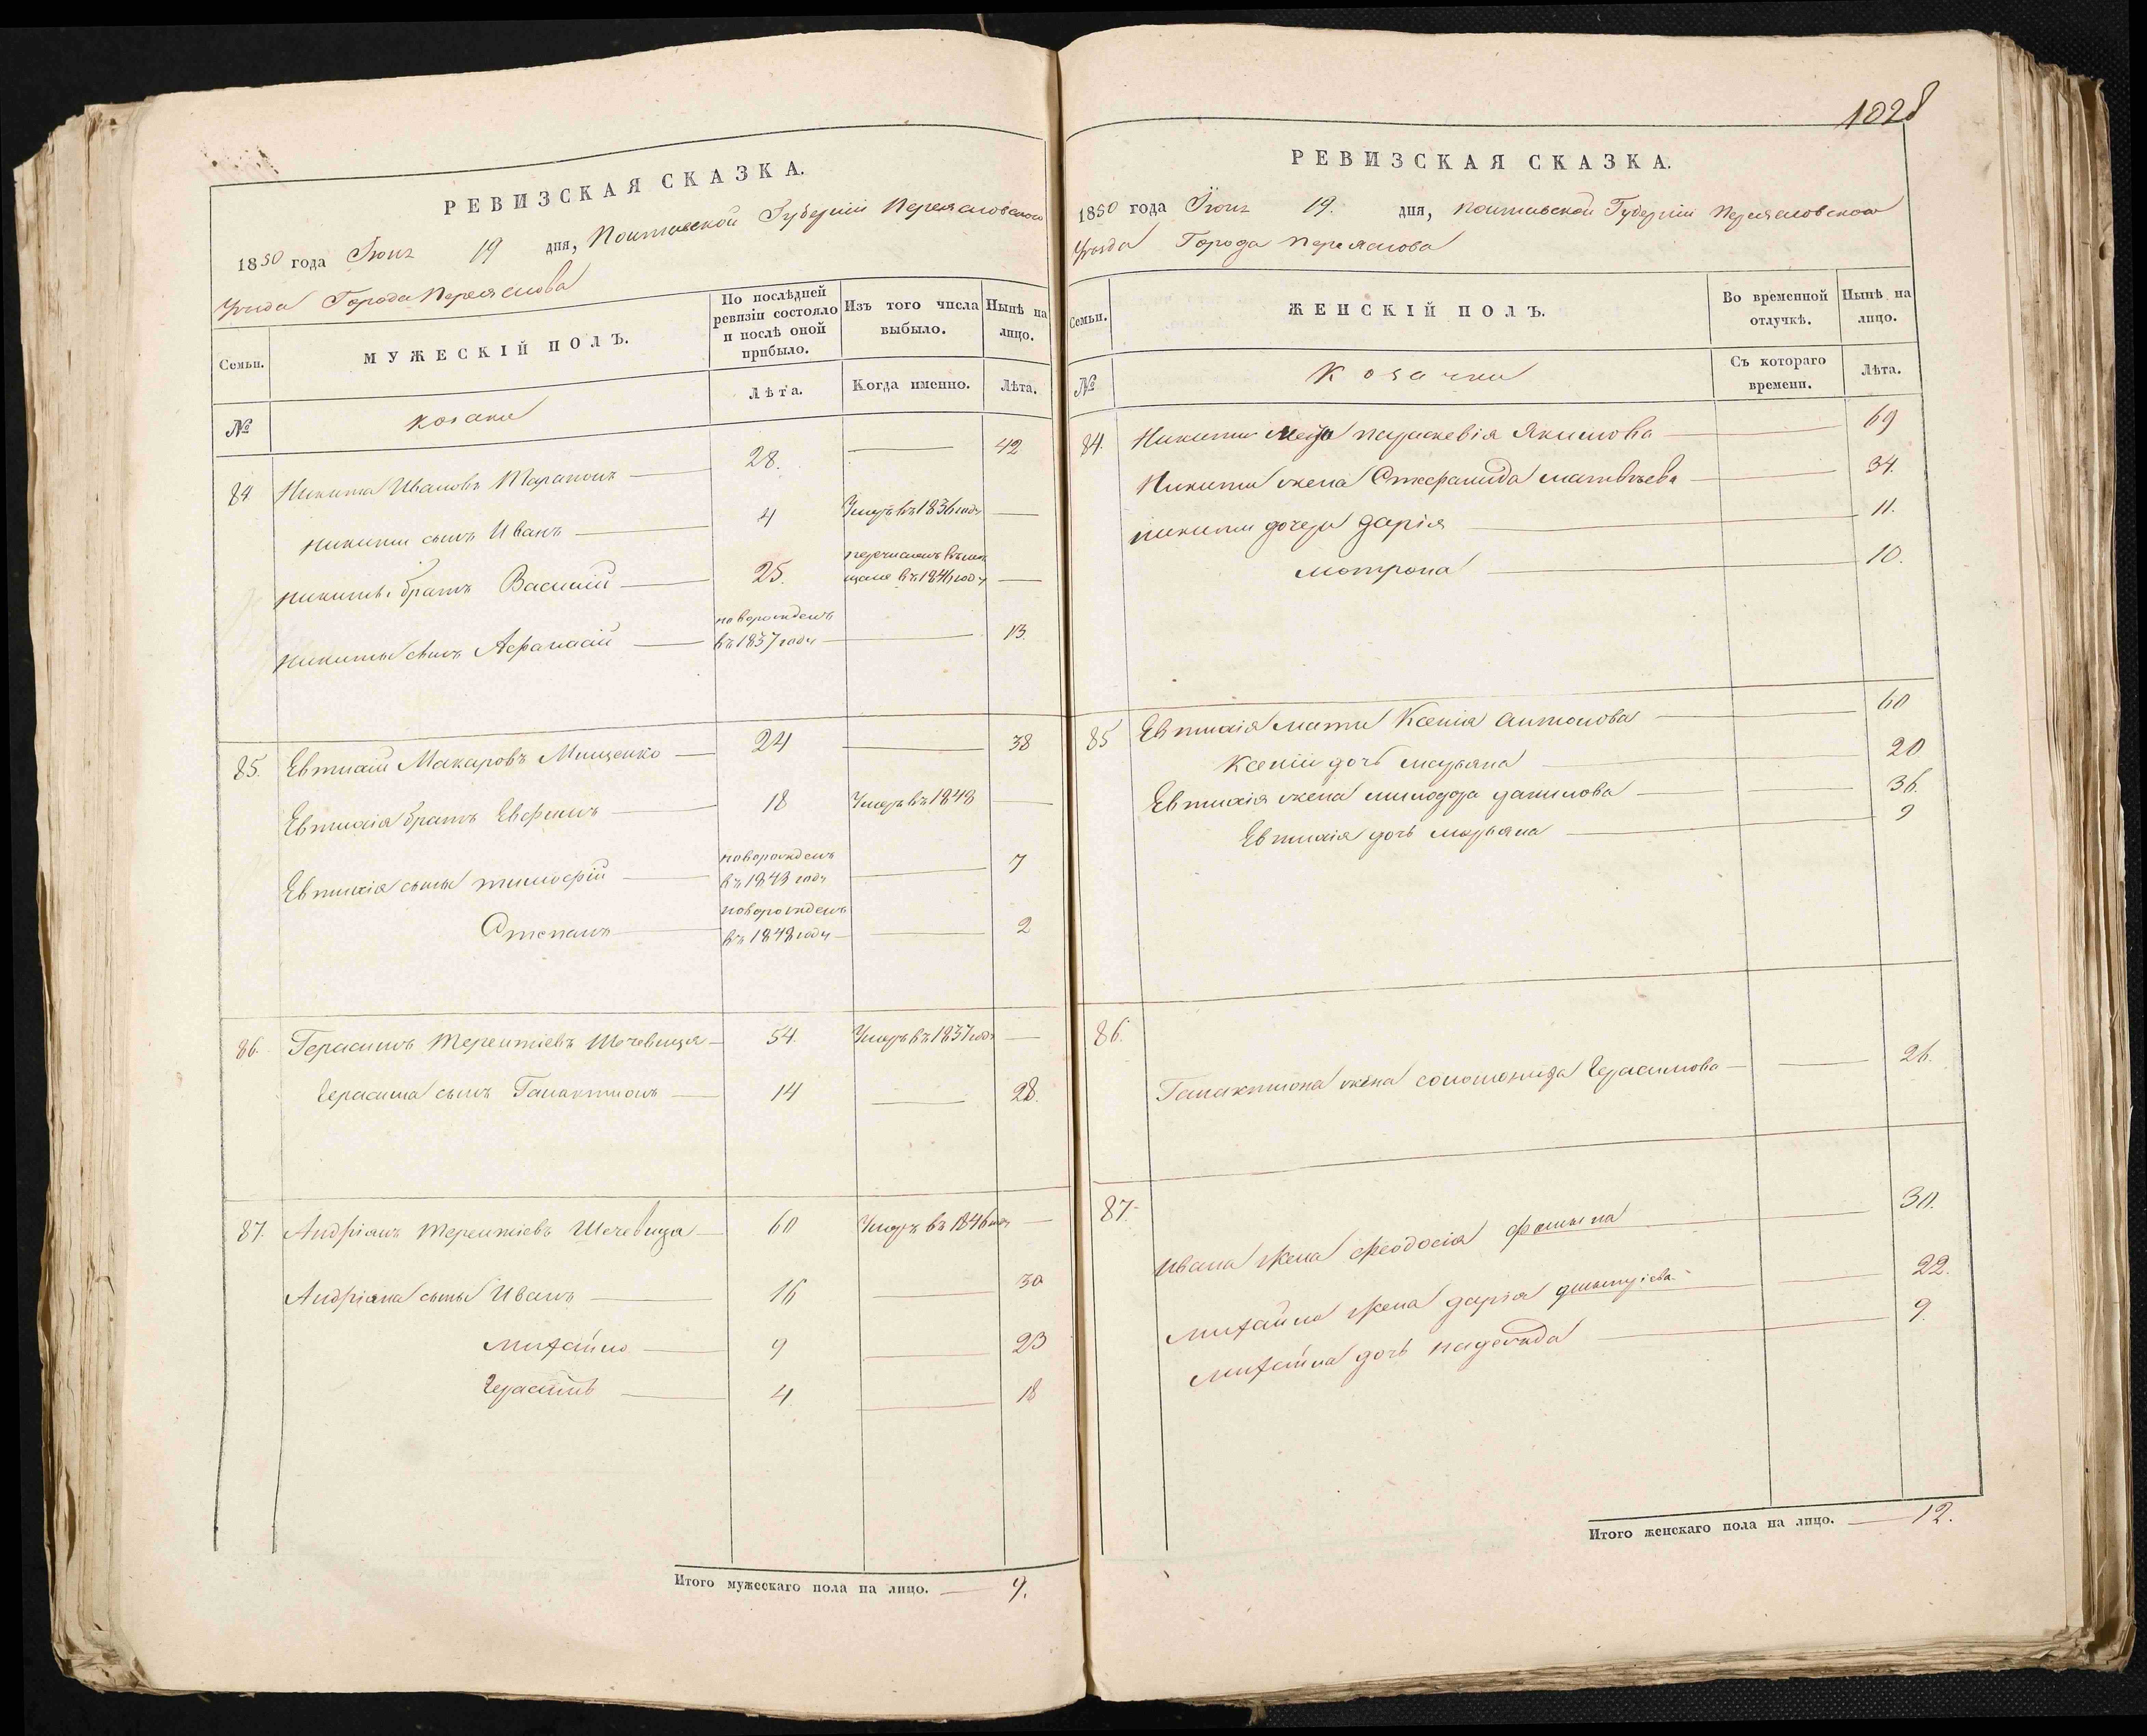 РЕВИЗСКАЯ СКАЗКА.
1850 года Іюня 19 дня, Полтавской Губерніи Переясловского
Уѣзда Города Переяслова
Семьи.
МУЖЕСКІЙ ПОЛЪ.
По послѣдней ревизіи состояло и послѣ оной прибыло.
Изъ того числа выбыло.
Нынѣ на лицо.
№
козаки
Лѣта.
Когда именно.
Лѣта.
84 Никита Ивановъ Таранъ 28. 42
Никиты сынъ Иванъ 4 Умеръ въ 1836 году
Никиты братъ Василій 25. перечисленъ въ мещане въ 1846 году
Никиты сынъ Афанасій новорожденъ въ 1837 году 13.
85. Евтихій Макаровъ Мищенко 24 38
Евтихія братъ Евфимъ 18 Умеръ въ 1848
Евтихія сыны тимофій новорожденъ въ 1843 году 7
Степанъ новорожденъ въ 1848 году 2
86. Герасимъ Терентіевъ Шечевица 54. Умеръ въ 1837 году
Герасима сынъ Галактіонъ 14 28.
87. Андріанъ Терентіевъ Шечевица 60 Умеръ въ 1846 году
Андріана сыны Иванъ 16 30
михайло 9 23
Герасимъ 4. 18
Итого мужескаго пола на лицо. 9.
1028
РЕВИЗСКАЯ СКАЗКА.
1850 года Іюня 19. дня, Полтавской Губерніи Переясловского
Уѣзда Города Переяслова
Семьи.
ЖЕНСКІЙ ПОЛЪ.
Во временной отлучкѣ.
Нынѣ на лицо.
№
Козачки
Съ котораго времени.
Лѣта.
84. Никиты параскевія Якимова 69
Никиты жена Стефанида матвѣева 34.
никиты дочери дарія 11.
мотрона 10.
85 Евтихія мати Ксенія антонова 60
Ксеніи дочь марьяна 20
Евтихія жена данилова 36.
Евтихія дочь марьяна 9
86.
Галактіона жена соломонида Герасимова 26.
87.
Ивана жена феодосія фомина 30.
михайла жена дарія дмытріева 22.
михайла дочь надежда 9.
Итого женскаго пола на лицо. 12.